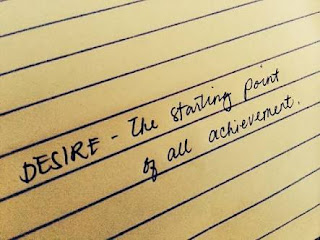 DESIRE - The starting point
of all achievement.